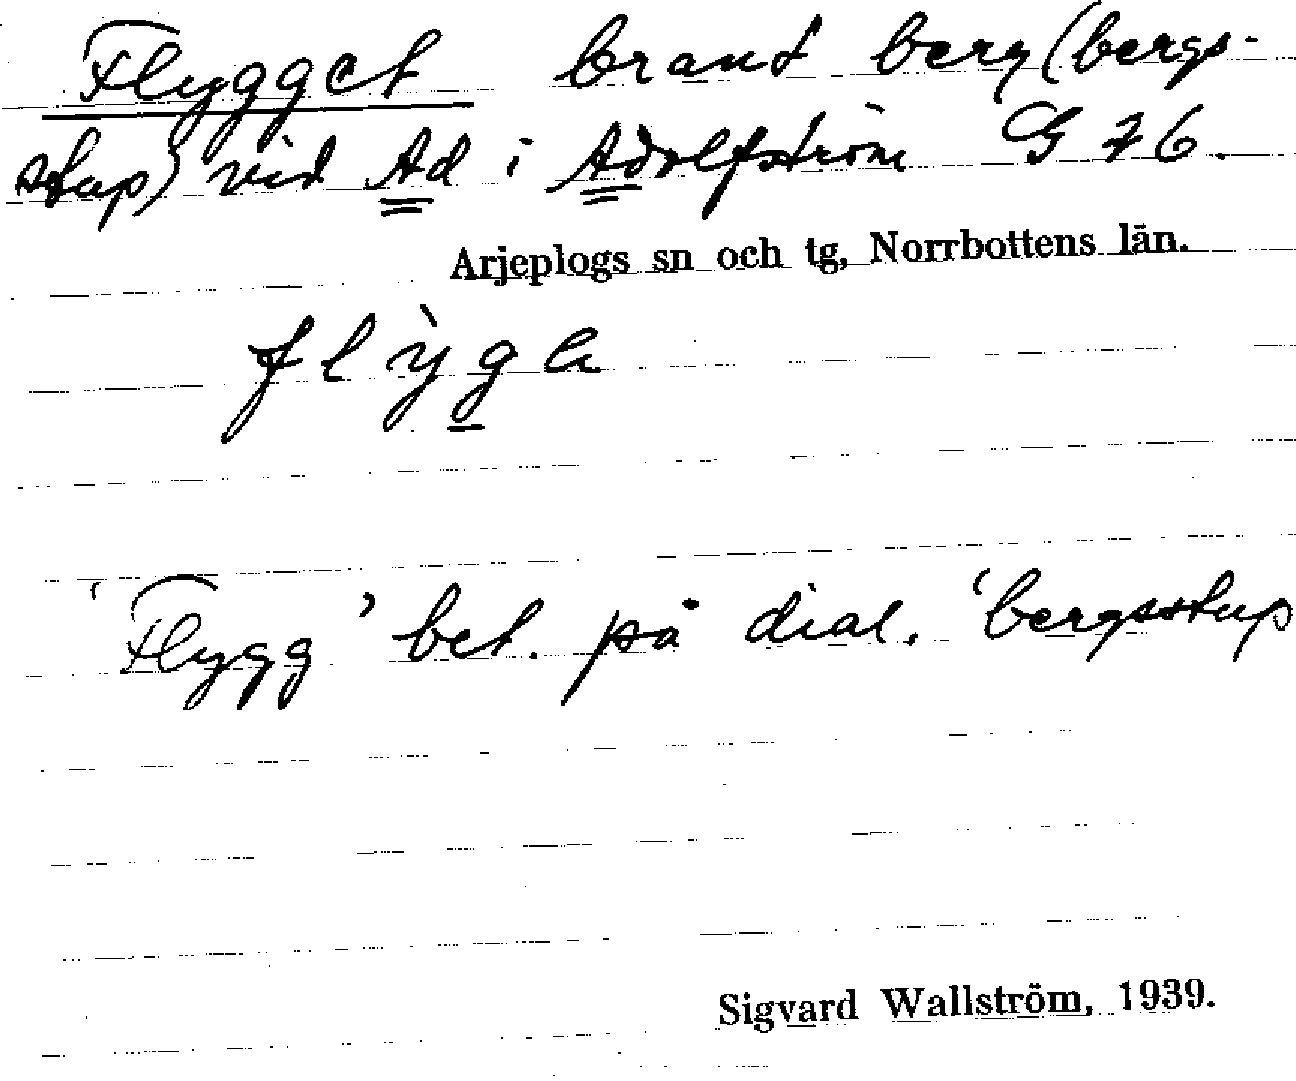 Flygget brant berg (bergs-
stup) vid Ad i Adolfström G 76.
Arjeplogs sn och tg, Norrbottens län.
flỳga
'Flygg' bet. på dial. 'bergsstup
Sigvard Wallström, 1939.